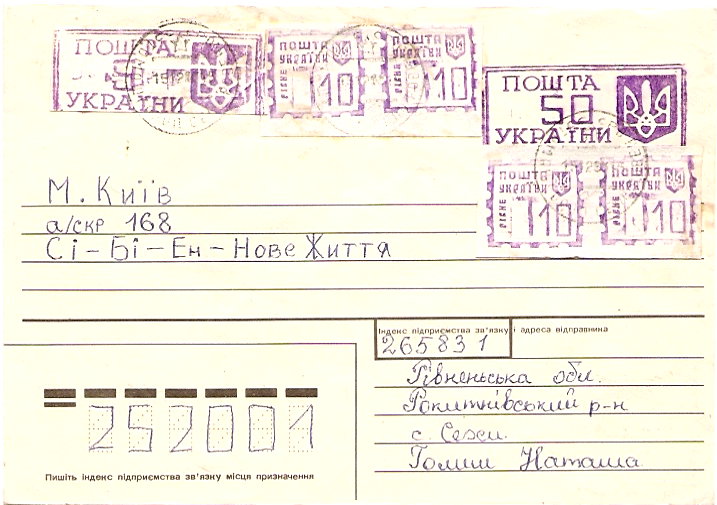 ПОШТА
УКРАЇНИ
ПОШТА
УКРАЇНИ
РІВНЕ
10
ПОШТА
УКРАЇНИ
РІВНЕ
10
ПОШТА
50
УКРАЇНИ
ПОШТА
УКРАЇНИ
РІВНЕ
10
ПОШТА
УКРАЇНИ
РІВНЕ
10
М. Київ
а/скр 168
Сі-Бі-Ен-Нове Життя
Індекс підприємства зв'язку і адреса відправника
265831
Рівненьська обл.
Рокитнівський р-н
с.
Голиш Наташа
252001
Пишіть індекс підприємства зв'язку місця призначення